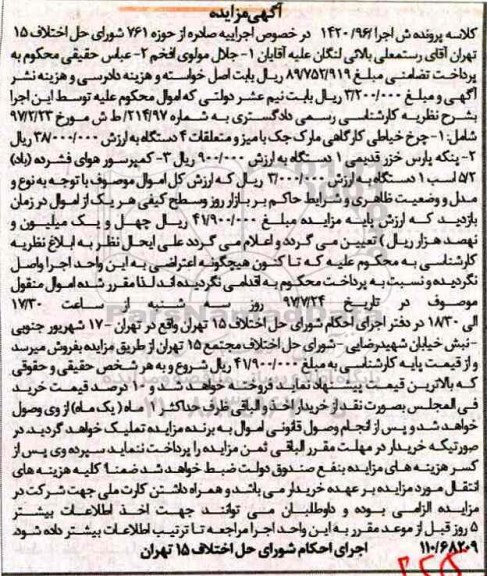 آگهی مزایده
کلاسه پرونده ش اجرا /۹۶/ ۱۴۲۰ در خصوص اجراییه صادره از حوزه ۷۶۱ شورای حل اختلاف ۱۵
تهران آقای رستمعلی بالائی لنگان علیه آقایان ۱- جلال مولوی افخم ۲- عباس حقیقی محکوم به
پرداخت تضامنی مبلغ ۸۹/۷۵۲/۹۱۹ ریال بابت اصل خواسته و هزینه دادرسی و هزینه نشر
آگهی و مبلغ ۳/۲۰۰/۰۰۰ ریال بابت نیم عشر دولتی که اموال محکوم علیه توسط این اجرا
بشرح نظریه کارشناسی رسمی دادگستری به شماره ۲۱۴/۹۷/ط ش مورخ ۹۷/۲/۲۳
شامل: ۱- چرخ خیاطی کارگاهی مارک جک با میز و متعلقات ۴ دستگاه به ارزش ۳۸/۰۰۰/۰۰۰ ریال
۲- پنکه پارس خزر قدیمی ۱ دستگاه به ارزش ۹۰۰/۰۰۰ ریال ۳- کمپرسور هوای فشرده (باد)
۵/۲ اسب ۱ دستگاه به ارزش ۳/۰۰۰/۰۰۰ ریال که ارزش کل اموال موصوف با توجه به نوع و
مدل و وضعیت ظاهری و شرایط حاکم بر بازار روز وسطح کیفی هر یک از اموال در زمان
بازدید که ارزش پایه مزایده مبلغ ۴۱/۹۰۰/۰۰۰ ریال چهل و یک میلیون و
نهصد هزار ریال) تعیین می گردد و اعلام می گردد علی ایحال نظر به ابلاغ نظریه
کارشناسی به محکوم علیه که تا کنون هیچگونه اعتراضی به این واحد اجرا واصل
نگردیده و نسبت به پرداخت محکوم به اقدامی نگردیده اند لذا مقرر شده اموال منقول
موصوف در تاریخ ۹۷/۷/۲۴ روز سه شنبه از ساعت ۱۷/۳۰
الی ۱۸/۳۰ در دفتر اجرای احکام شورای حل اختلاف ۱۵ تهران واقع در تهران - ۱۷ شهریور جنوبی
- نبش خیابان شهیدرضایی - شورای حل اختلاف مجتمع ۱۵ تهران از طریق مزایده بفروش میرسد
و از قیمت پایه کارشناسی به مبلغ ۴۱/۹۰۰/۰۰۰ ریال شروع و به هر شخص حقیقی و حقوقی
که بالاترین قیمت پیشنهاد نماید فروخته خواهد شد و ۱۰ درصد قیمت خرید
فی المجلس بصورت نقد از خریدار اخذ و الباقی ظرف حداکثر ۱ ماه ( یک ماه) از وی وصول
خواهد شد و پس از انجام وصول قانونی اموال به برنده مزایده تملیک خواهد گردید در
صورتیکه خریدار در مهلت مقرر الباقی ثمن مزایده را پرداخت ننماید سپرده وی پس از
کسر هزینه های مزایده بنفع صندوق دولت ضبط خواهد شد ضمنا" کلیه هزینه های
انتقال مورد مزایده بر عهده خریدار می باشد و همراه داشتن کارت ملی جهت شرکت در
مزایده الزامی بوده و داوطلبان می توانند جهت اخذ اطلاعات بیشتر
۵ روز قبل از موعد مقرر به این واحد اجرا مراجعه تا ترتیب اطلاعات بیشتر داده شود
۱۱۰/۶۸۲۰۹ اجرای احکام شورای حل اختلاف ۱۵ تهران